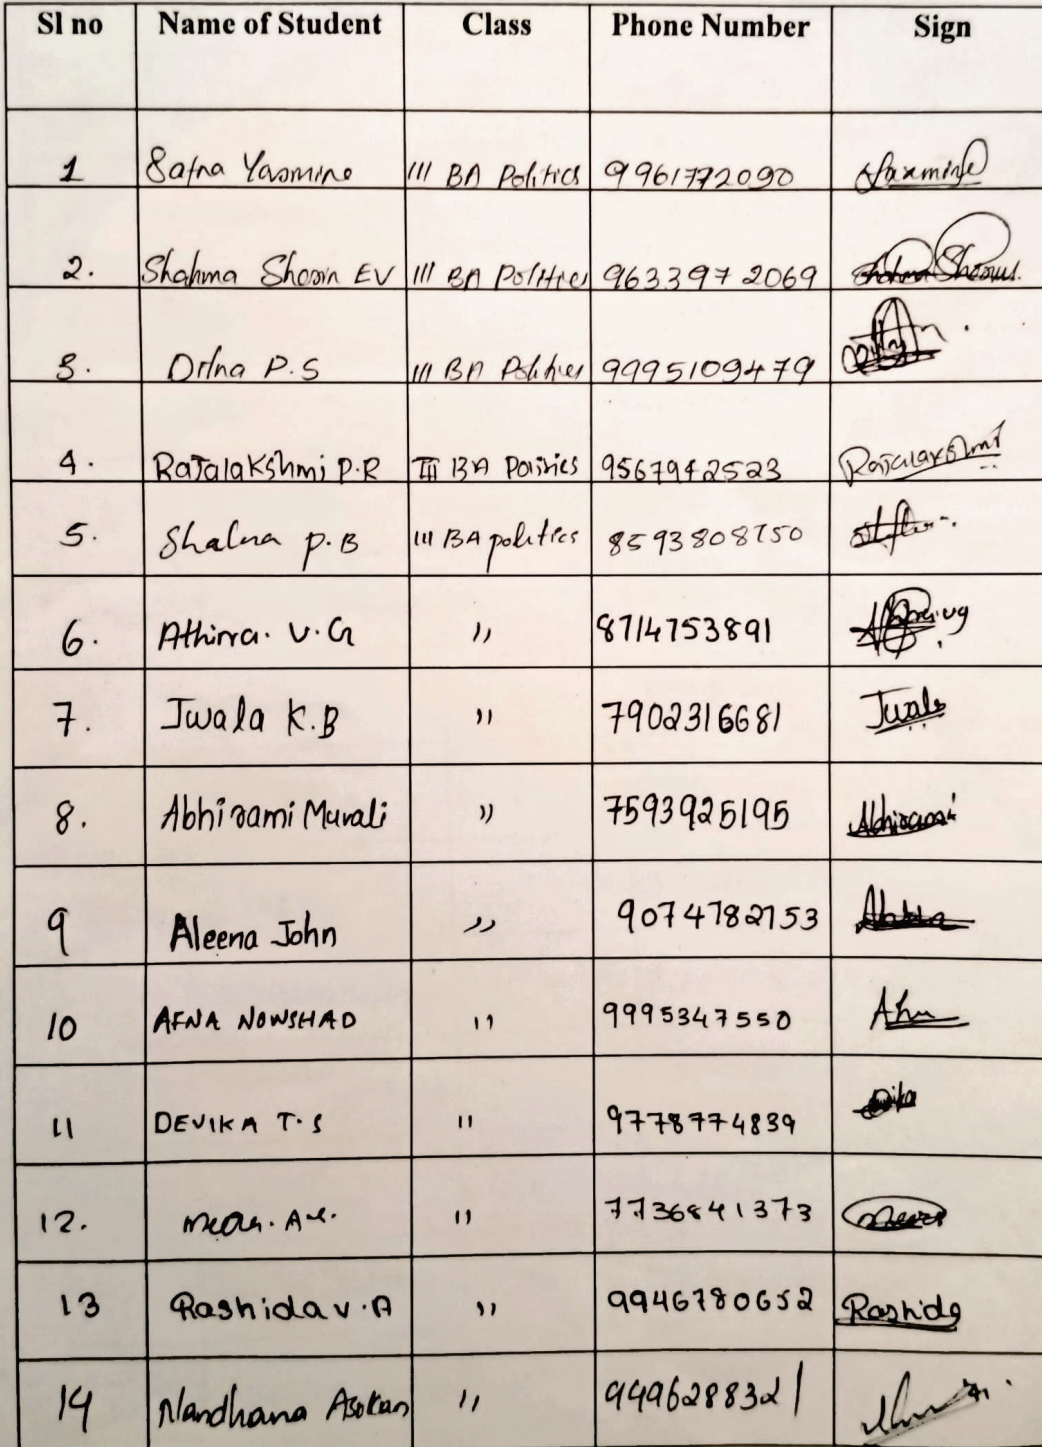 Sl no Name of Student Class Phone Number Sign
1 Safna Yasmine III BA Politics 9961772090 Yaxmine
2. Shahma Shosin EV III BA Politics 9633972069
3. Dilna P.S III BA Politics 9995109479
4. Rajalakshmi P.R III BA Politics 9567942523 Rajalakshmi
5. Shalna P.B III BA politics 8593808750
6. Athirra. V.G ,, 8714753891
7. Jwala K.B ,, 7902316681 Jwala
8. Abhirami Murali ,, 7593925195 Abhirami
9 Aleena John ,, 9074782753
10 AFNA NOWSHAD ,, 9995347550
11 DEVIKA T.S ,, 9778774839
12. ,, 7736841373
13 Rashida V.A ,, 9946780652 Rashida
14 Nandhana Asokan ,, 9496288321